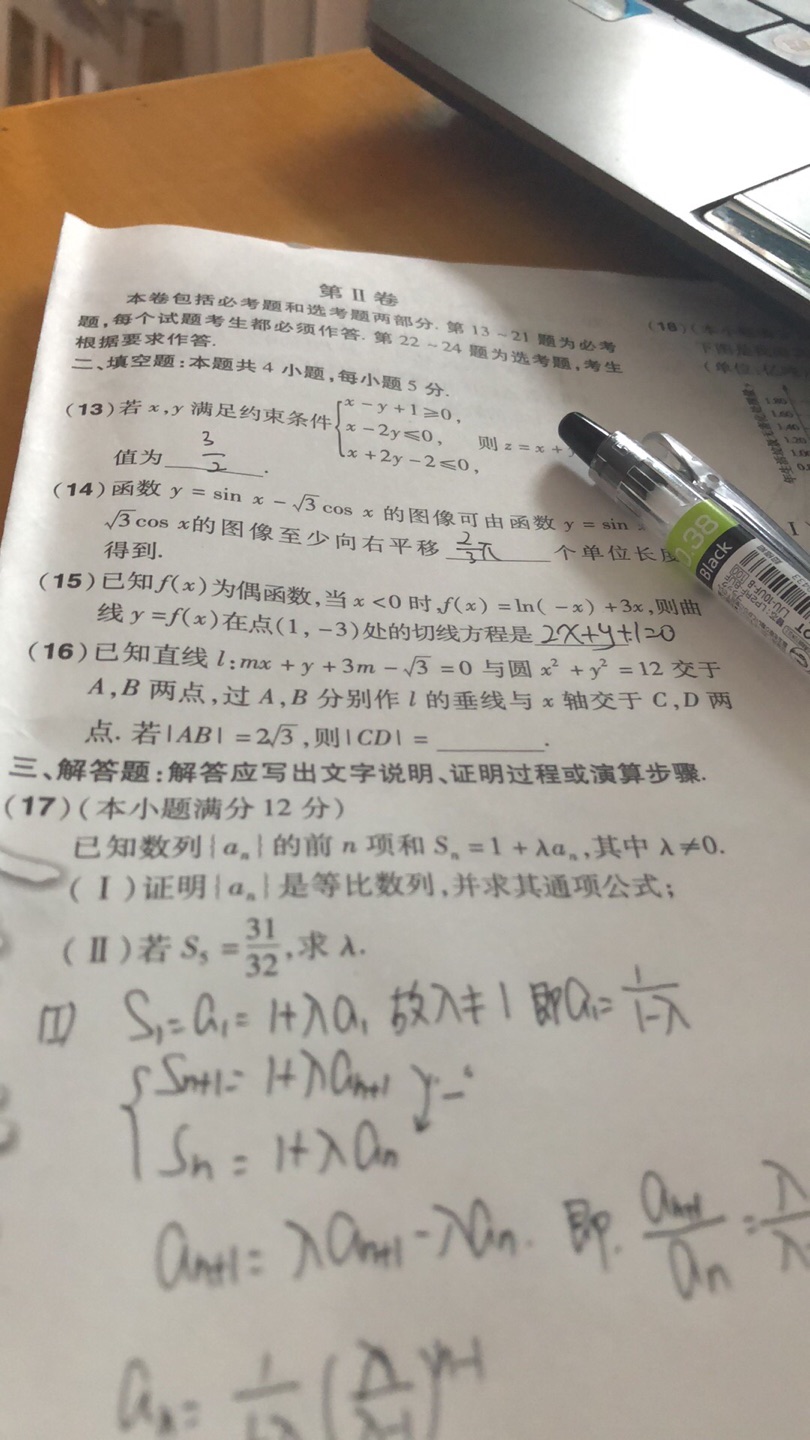 第 Ⅱ 卷
本卷包括必考题和选考题两部分. 第 13 ~ 21 题为必考
题,每个试题考生都必须作答. 第 22 ~ 24 题为选考题,考生
根据要求作答.
二、填空题:本题共 4 小题,每小题 5 分.
(13)若 x,y 满足约束条件{x - y + 1 ≥ 0, x - 2y ≤ 0, x + 2y - 2 ≤ 0, 则 z = x +
值为 3/2 .
(14)函数 y = sin x - √3 cos x 的图像可由函数 y = sin
√3 cos x的图像至少向右平移 2/3 π 个单位长度
得到.
(15)已知 f(x)为偶函数,当 x < 0 时,f(x) = ln( - x) + 3x,则曲
线 y = f(x)在点(1, - 3)处的切线方程是 2x+y+1=0
(16)已知直线 l:mx + y + 3m - √3 = 0 与圆 x² + y² = 12 交于
A,B 两点,过 A,B 分别作 l 的垂线与 x 轴交于 C,D 两
点. 若|AB| = 2√3,则|CD| = ________.
三、解答题:解答应写出文字说明、证明过程或演算步骤.
(17)(本小题满分 12 分)
已知数列{aₙ}的前 n 项和 Sₙ = 1 + λaₙ,其中 λ ≠ 0.
(Ⅰ)证明{aₙ}是等比数列,并求其通项公式;
(Ⅱ)若 S₅ = 31/32,求 λ.
(I) S₁ = a₁ = 1+λa₁ 故λ≠1 即a₁ = 1/(1-λ)
{Sₙ₊₁ = 1+λaₙ₊₁
Sₙ = 1+λaₙ
aₙ₊₁ = λaₙ₊₁ - λaₙ. 即. aₙ₊₁/aₙ = λ/λ
aₙ = 1/(1-λ) (λ/(λ-1))ⁿ⁻¹
(18)
(单位:
1.80
1.60
1.40
1.20
0.38
Black